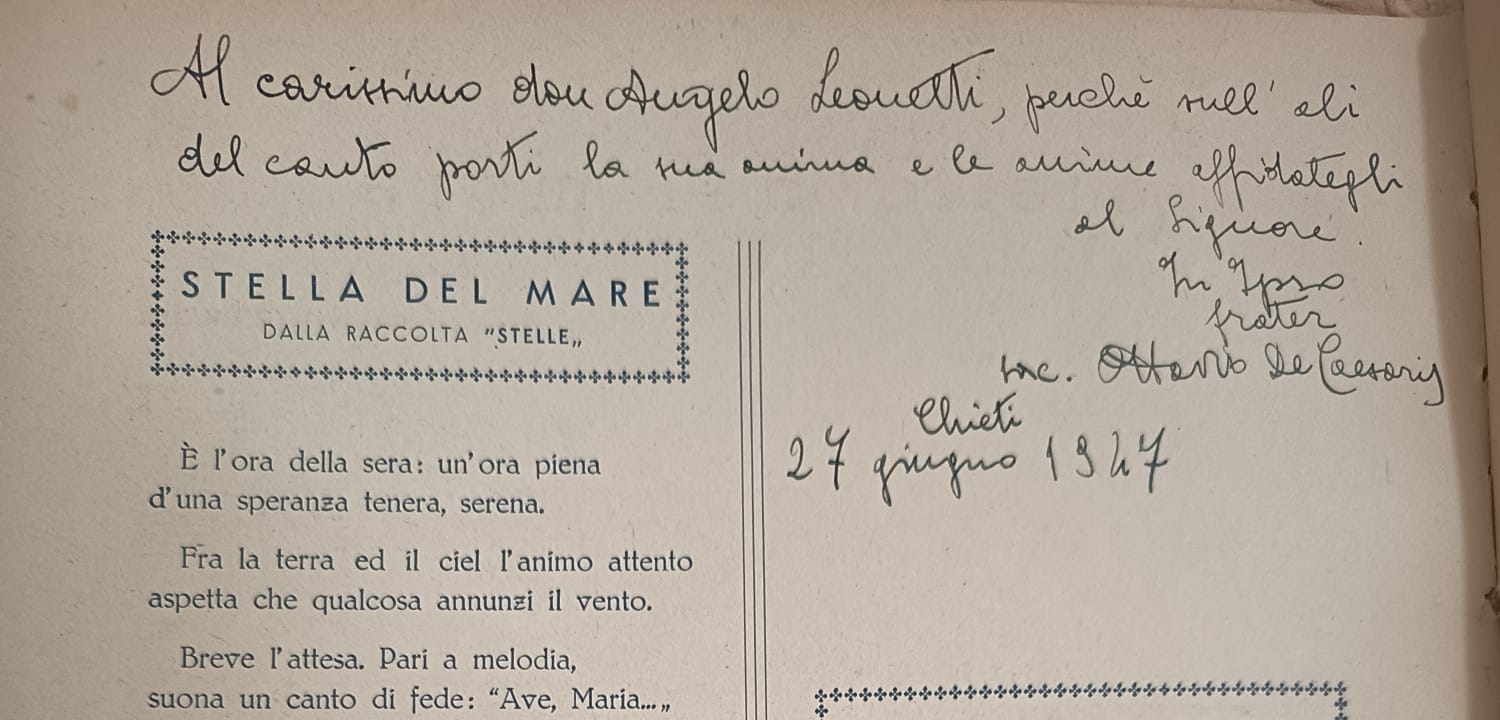 Al carissimo don Angelo Leonetti, perchè sull'ali
del canto porti la sua anima e le anime affidategli
al Signore.
In Ipso
frater
sac. Ottavio De Caesaris
Chieti
27 giugno 1947
STELLA DEL MARE
DALLA RACCOLTA "STELLE„
È l'ora della sera: un'ora piena
d'una speranza tenera, serena.
Fra la terra ed il ciel l'animo attento
aspetta che qualcosa annunzi il vento.
Breve l'attesa. Pari a melodia,
suona un canto di fede: "Ave, Maria...„